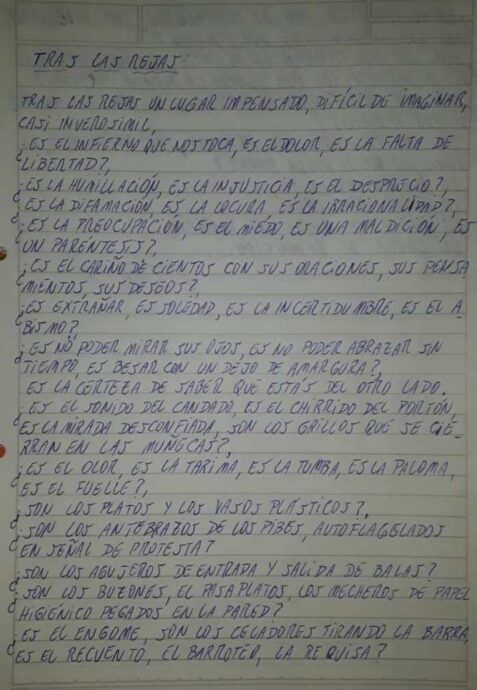 TRAS LAS REJAS
TRAS LAS REJAS UN LUGAR IMPENSADO, DIFÍCIL DE IMAGINAR,
CASI INVEROSIMIL,
¿ES EL INFIERNO QUE NOS TOCA, ES EL DOLOR, ES LA FALTA DE
LIBERTAD?,
¿ES LA HUMILLACIÓN, ES LA INJUSTICIA, ES EL DESPRECIO?,
¿ES LA DIFAMACIÓN, ES LA LOCURA, ES LA IRRACIONALIDAD?,
¿ES LA PREOCUPACIÓN, ES EL MIEDO, ES UNA MALDICIÓN, ES
UN PARENTESIS?,
¿ES EL CARIÑO DE CIENTOS CON SUS ORACIONES, SUS PENSA
MIENTOS, SUS DESEOS?,
¿ES EXTRAÑAR, ES SOLEDAD, ES LA INCERTIDUMBRE, ES EL A-
BISMO?,
¿ES NO PODER MIRAR SUS OJOS, ES NO PODER ABRAZAR SIN
TIEMPO, ES BESAR CON UN DEJO DE AMARGURA?,
ES LA CERTEZA DE SABER QUE ESTÁS DEL OTRO LADO.
¿ES EL SONIDO DEL CANDADO, ES EL CHIRRIDO DEL PORTÓN,
ES LA MIRADA DESCONFIADA, SON LOS GRILLOS QUE SE CIE-
RRAN EN LAS MUÑECAS?,
¿ES EL OLOR, ES LA TARIMA, ES LA TUMBA, ES LA PALOMA,
ES EL FUELLE?,
¿SON LOS PLATOS Y LOS VASOS PLÁSTICOS?,
¿SON LOS ANTEBRAZOS DE LOS PIBES, AUTOFLAGELADOS
EN SEÑAL DE PROTESTA?
¿SON LOS AGUJEROS DE ENTRADA Y SALIDA DE BALAS?
¿SON LOS BUZONES, EL PASAPLATOS, LOS MECHEROS DE PAPEL
HIGIÉNICO PEGADOS EN LA PARED?
¿ES EL ENGOME, SON LOS CELADORES TIRANDO LA BARRA,
ES EL RECUENTO, EL BARROTEO, LA REQUISA?